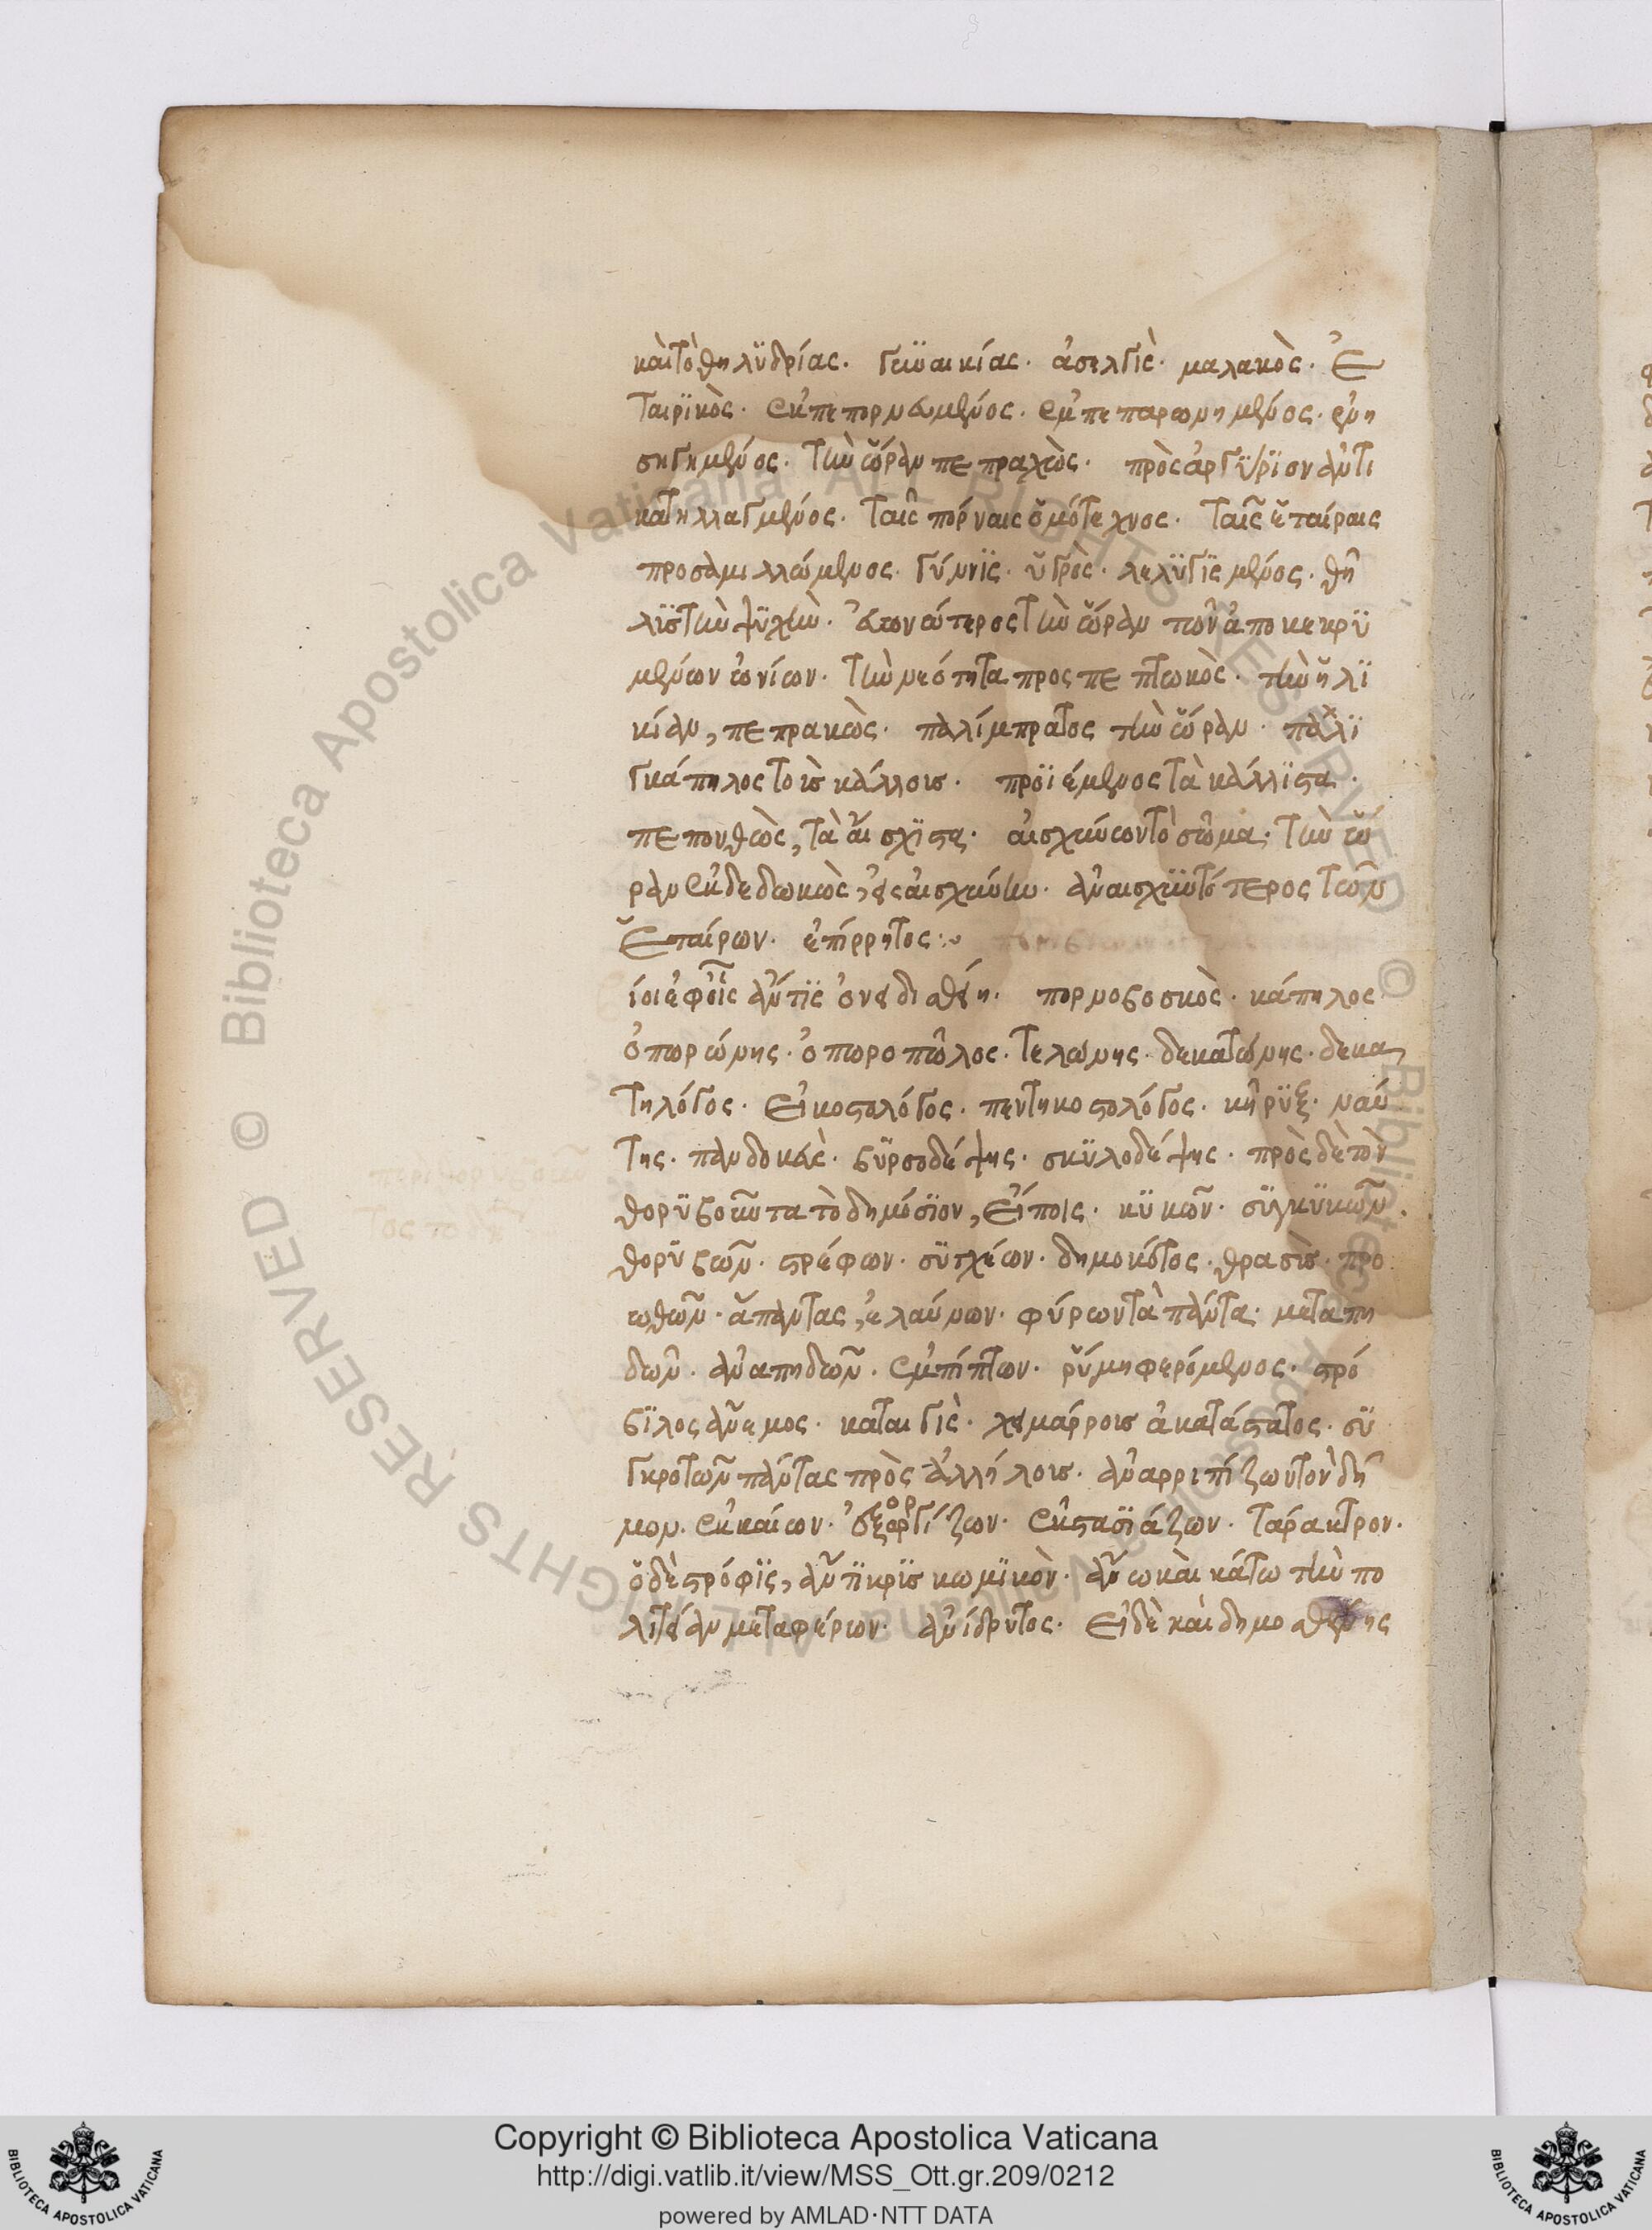 καὶ τὸ θηλϋδρίας. γϋναικίας. ἀσελγὴς. μαλακὸς. ἐ
ταιρϊκὸς. ἐκπεπορνευμένος. ἐμπεπαρωνημένος. ἐνη
σηγημένος. τὴν ὥραν πεπρακὼς. πρὸς ἀργϋρϊον αὐτὴ
κατηλλαγμένος. ταῖς πόρναις ὁμότεχνος. ταῖς ἑταίραις
προσαμιλλώμενος. γύννϊς. ὑγρὸς. λελϋγϊσμένος. θῆ
λϊς τὴν ψϋχήν. εὐωνώτερος τὴν ὥραν τῶν ἀποκεκρϋ
μένων ὠνίων. τὴν νεότητα προσπεπτωκὸς. τὴν ἡλϊ
κίαν, πεπρακὼς. παλίμπρατος τὴν ὥραν. παλϊ
γκάπηλος τοῖς κάλλοις. πρϊέμενος τὰ κάλλϊστα.
πεπονθὼς, τὰ αἴσχϊστα. αἰσχύνων τὸ σῶμα. τὴν ὥ
ραν ἐκδεδωκὼς, εἰς αἰσχύνην. ἀναισχϋντότερος τῶν
ἑταίρων. ἐπίρρητος:
ίοι ἐφ οἷς αὔτϊς ὀνειδισθείη. πορνοβοσκὸς. κάπηλος
ὀπωρώνης. ὀπωροπώλος. τελώνης. δεκατώνης. δεκα
τηλόγος. εἰκοστολόγος. πεντηκοστολόγος. κῆρϋξ. ναύ
της. πανδοκεὺς. βϋρσοδέψης. σκϋλοδέψης. πρὸς δὲ τὸν
θορϋβοῦντα τὸ δημόσϊον, εἴποις. κϋκῶν. σϋγκϋκῶν.
θορϋβῶν. στρέφων. σϋγχέων. δημοκότος. θρασὺς. προ
ωθῶν. ἅπαντας, ἐλαύνων. φύρων τὰ πάντα. μεταπη
δῶν. ἀναπηδῶν. ἐμπίπτων. ῥύμη φερόμενος. στρό
βϊλος ἄνεμος. καταιγὶς. χειμάρρους ἀκατάστατος. σϋ
γκροτῶν πάντας πρὸς ἀλλήλους. ἀναρριπίζων τὸν δῆ
μον. ἐκκαίων. ἐξοργίζων. ἐκστασϊάζων. τάρακτρον.
ὁ δὲ στρόφϊς, ἄντϊκρϊς κωμϊκὸν. ἄνω καὶ κάτω τὴν πο
λιτείαν μεταφέρων. ἀνίδρυτος. εἰ δὲ καὶ δημοσθένης
Copyright © Biblioteca Apostolica Vaticana
http://digi.vatlib.it/view/MSS_Ott.gr.209/0212
powered by AMLAD·NTT DATA